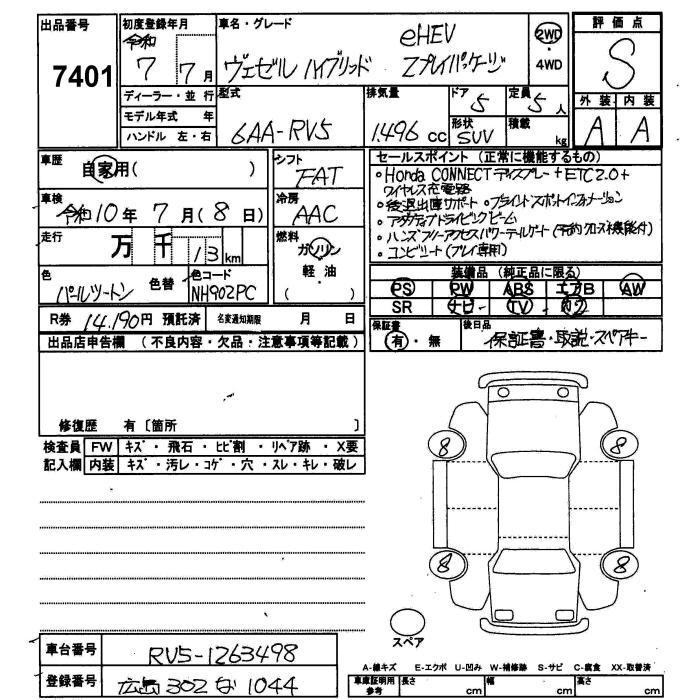 出品番号 7401
初度登録年月 令和 7 7月
車名・グレード eHEV
ヴェゼル ハイブリッド Zプレイパッケージ
2WD・4WD
評価点 S
外装 内装
A A
ディーラー・並行
モデル年式 年
ハンドル 左・右
型式 6AA-RV5
排気量 1.496 cc
ドア 5
定員 5人
形状 SUV
積載 kg
車歴 自家用( )
シフト FAT
車検 令和10年7月(8日)
冷房 AAC
走行 万千13km
燃料 ガソリン
軽・油
( )
色 パールツートン
色替
色コード NH902PC
R券 14,190円 預託済
名変通知期限 月 日
セールスポイント (正常に機能するもの)
○Honda CONNECTディスプレー+ETC2.0+
ワイヤレス充電器
○後退出庫サポート ○ブラインドスポットインフォメーション
○アダプティブドライビングビーム
○ハンズフリーアクセスパワーテールゲート(予約クローズ機能付)
○コンビシート(プレイ専用)
装備品 (純正品に限る)
PS PW ABS エアB AW
SR ナビ TV
保証書 有・無
後日品 保証書・取説・スペアキー
出品店申告欄 (不良内容・欠品・注意事項等記載)
修復歴 有〔箇所 〕
検査員 FW キズ・飛石・ヒビ割・リペア跡・X要
記入欄 内装 キズ・汚レ・コゲ・穴・スレ・キレ・破レ
8 8
8 8
スペア
車台番号 RV5-1263498
登録番号 広島 302 な 1044
A-線キズ E-エクボ U-凹み W-補修跡 S-サビ C-腐食 XX-取替済
車庫証明用参考 長さ cm 幅 cm 高さ cm